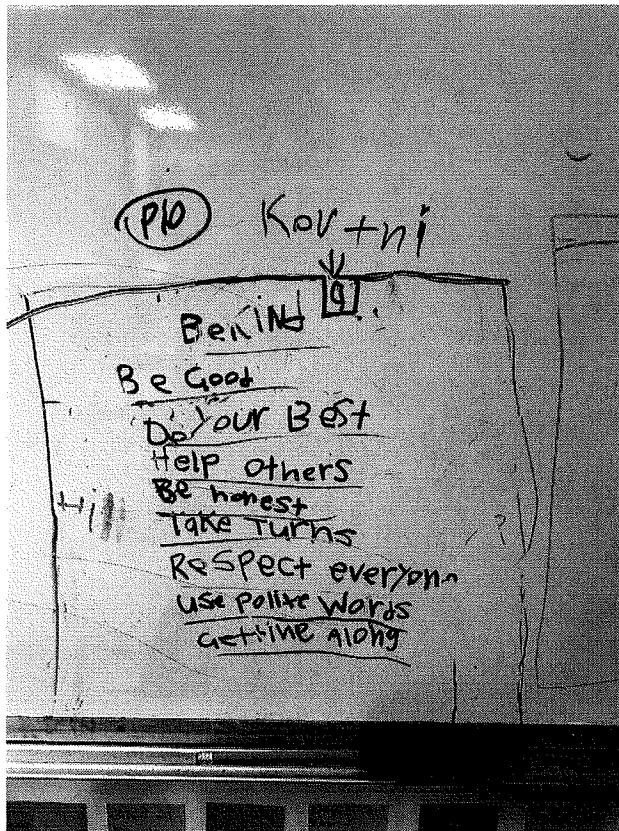 P10 Kov+ni
9
BeKiNd
Be Good
Do Your Best
Help others
Hi
Be honest
Take Turns
ReSPect everyon
use polite Words
Getting Along